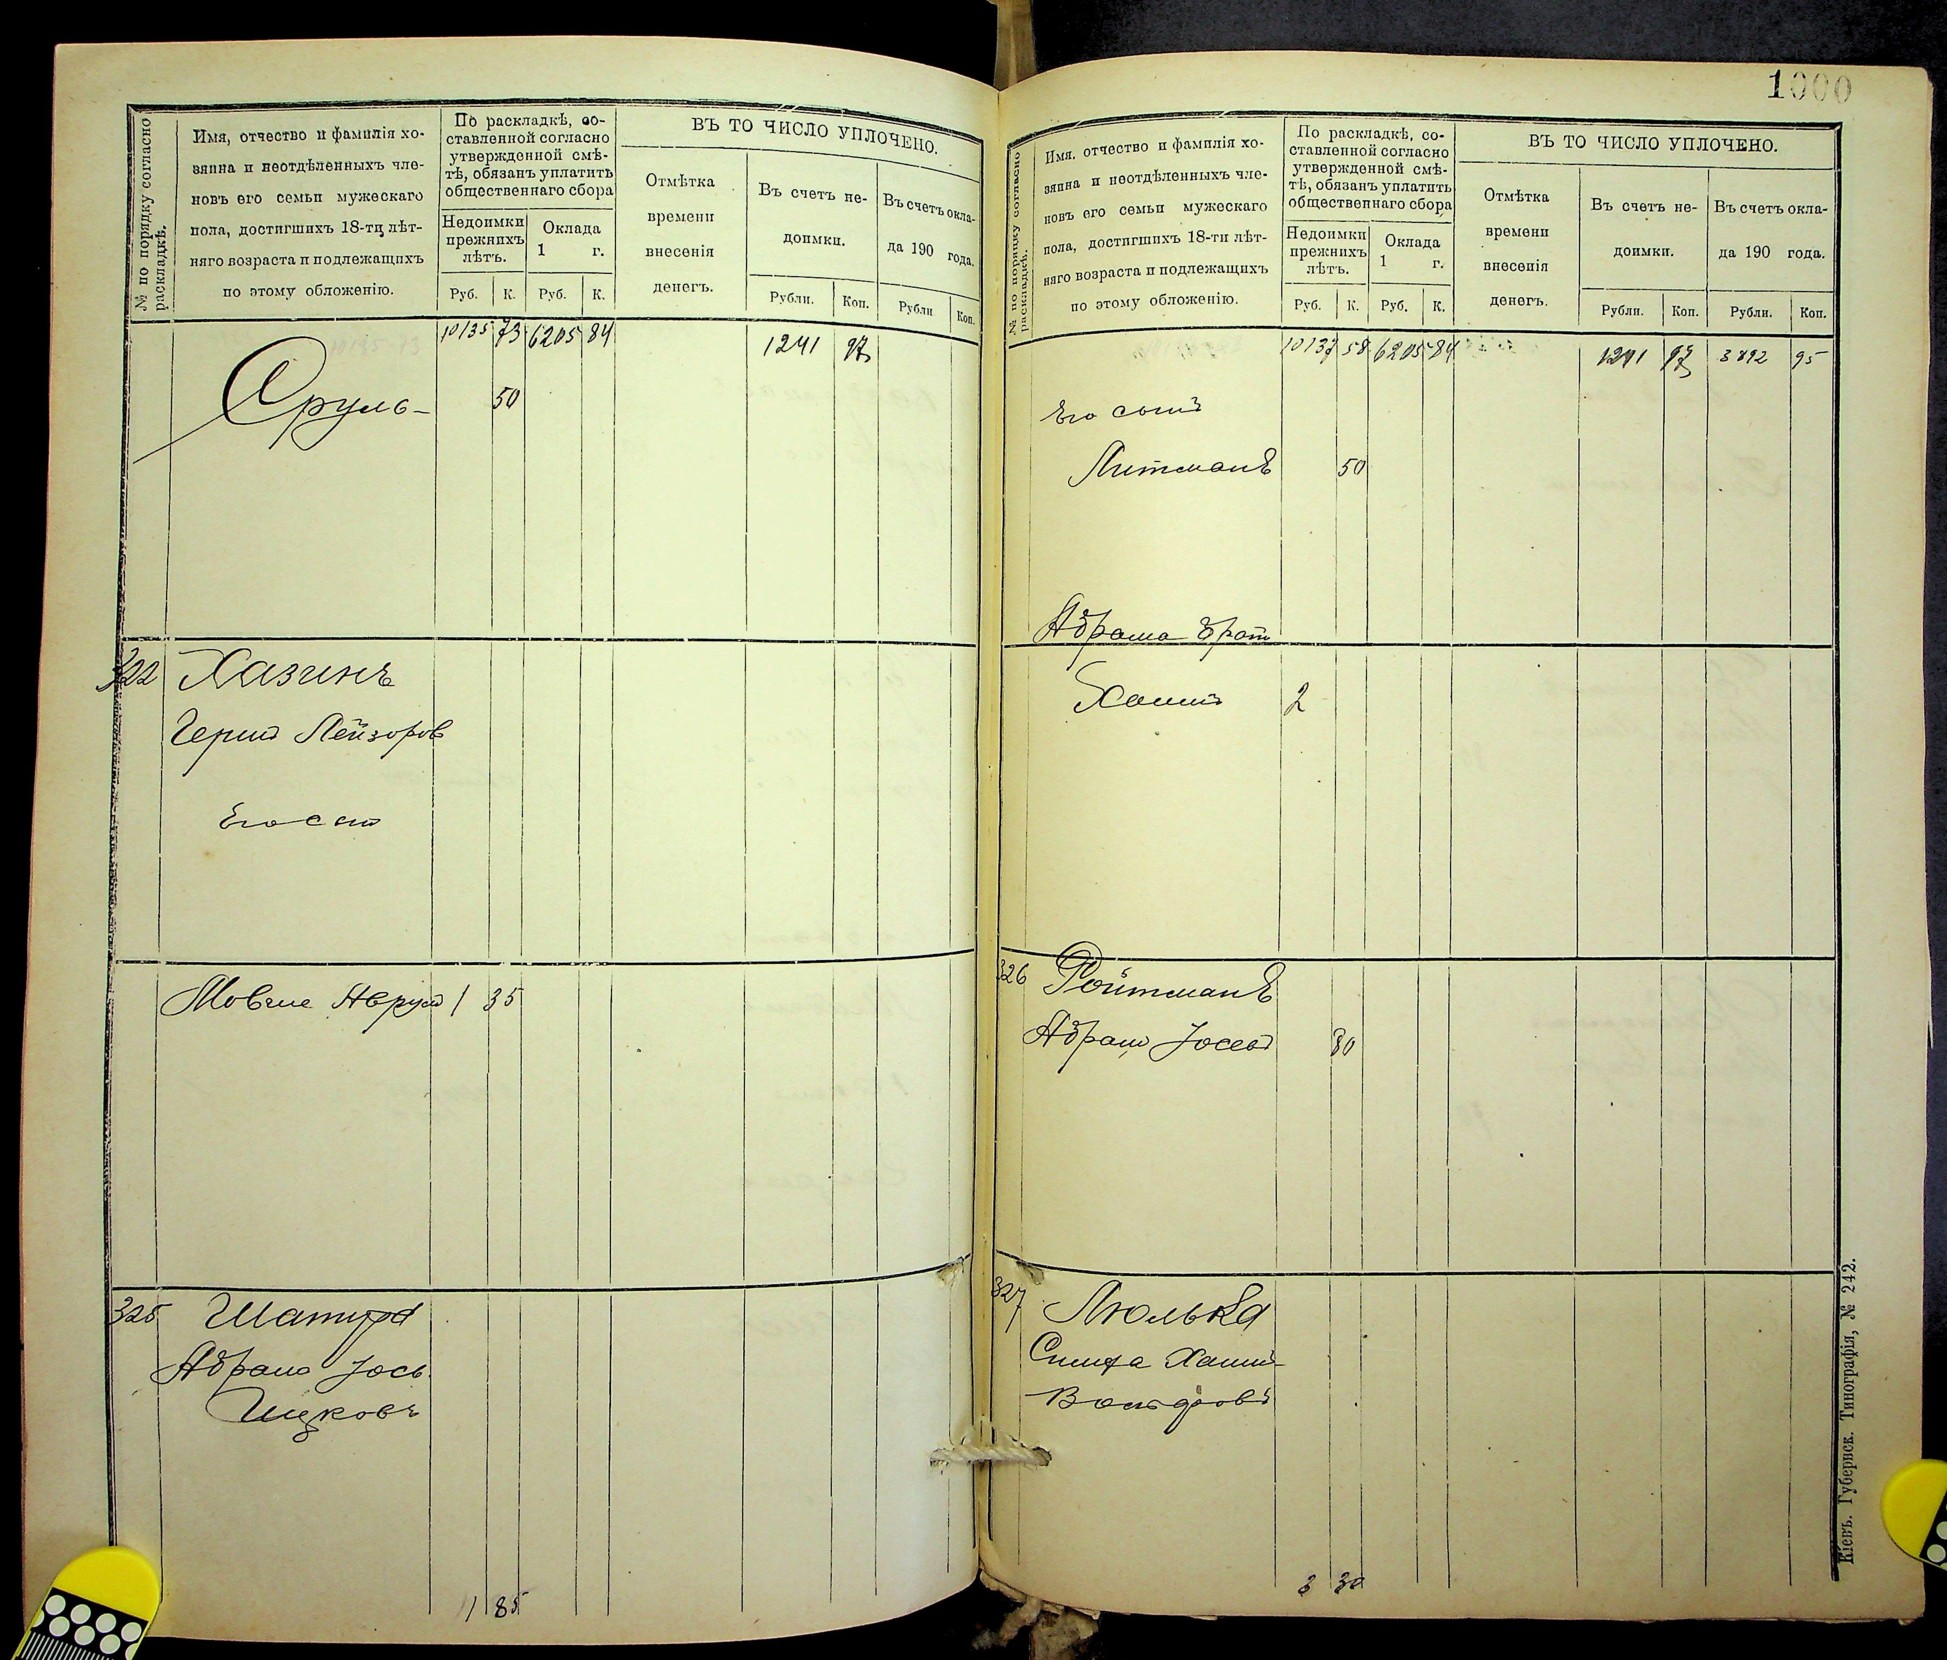 № по порядку согласно раскладкѣ.
Имя, отчество и фамилія хо-
зяина и неотдѣленныхъ чле-
новъ его семьи мужескаго
пола, достигшихъ 18-ти лѣт-
няго возраста и подлежащихъ
по этому обложенію.
По раскладкѣ, со-
ставленной согласно
утвержденной смѣ-
тѣ, обязанъ уплатить
общественнаго сбора
Недоимки
прежнихъ
лѣтъ.
Оклада
1 г.
Руб. К. Руб. К.
ВЪ ТО ЧИСЛО УПЛОЧЕНО.
Отмѣтка
времени
внесенія
денегъ.
Въ счетъ не-
доимки.
Рубли. Коп.
Въ счетъ окла-
да 190 года.
Рубли Коп.
10135 73 6205 84 1241 97
Сруль- 50
322 Хазинъ
Герш Лейзоров
Его сын
Мовше Аврум 1 35
325 Шатура
Абрам Іось
Ицковъ
1 85
1000
№ по порядку согласно раскладкѣ.
Имя, отчество и фамилія хо-
зяина и неотдѣленныхъ чле-
новъ его семьи мужескаго
пола, достигшихъ 18-ти лѣт-
няго возраста и подлежащихъ
по этому обложенію.
По раскладкѣ, со-
ставленной согласно
утвержденной смѣ-
тѣ, обязанъ уплатить
общественнаго сбора
Недоимки
прежнихъ
лѣтъ.
Оклада
1 г.
Руб. К. Руб. К.
ВЪ ТО ЧИСЛО УПЛОЧЕНО.
Отмѣтка
времени
внесенія
денегъ.
Въ счетъ не-
доимки.
Рубли. Коп.
Въ счетъ окла-
да 190 года.
Рубли. Коп.
10137 58 6205 84 1241 97 3892 95
Его сынъ
Литманъ 50
Абрама брат
Хаим 2
326 Ройтманъ
Абрам Іосев 80
327 Люлька
Симха Хаим-
Вольфовъ
3 30
Кіевъ. Губернск. Типографія, № 242.